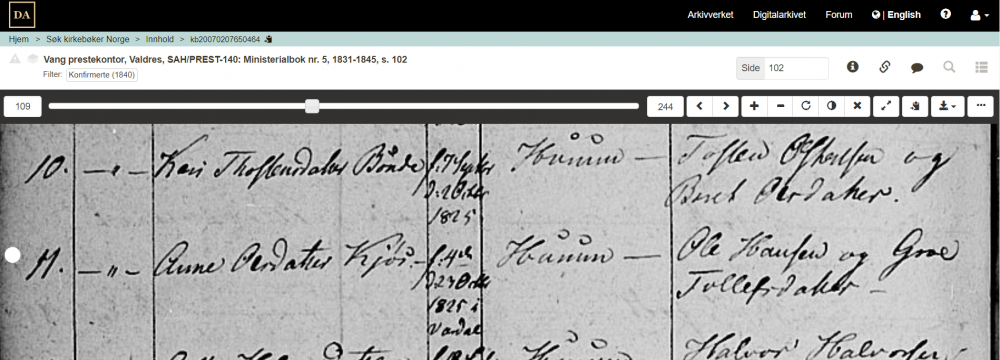 DA
Arkivverket Digitalarkivet Forum | English
Hjem > Søk kirkebøker Norge > Innhold > kb20070207650464
Vang prestekontor, Valdres, SAH/PREST-140: Ministerialbok nr. 5, 1831-1845, s. 102
Filter: Konfirmerte (1840)
Side 102
109
244
10. — " — Kari Thostensdatter Bønde f: 7 Septbr Huuun — Tosten Ostensen og
D: 2 Octbr Berit Olsdatter.
1825
11. — " — Anne Olsdatter Kjøs — f: 4de Huuun — Ole Hansen og Groe
D 23 Octbr Tollefsdatter —
1825 i
Halvor Halvorsen